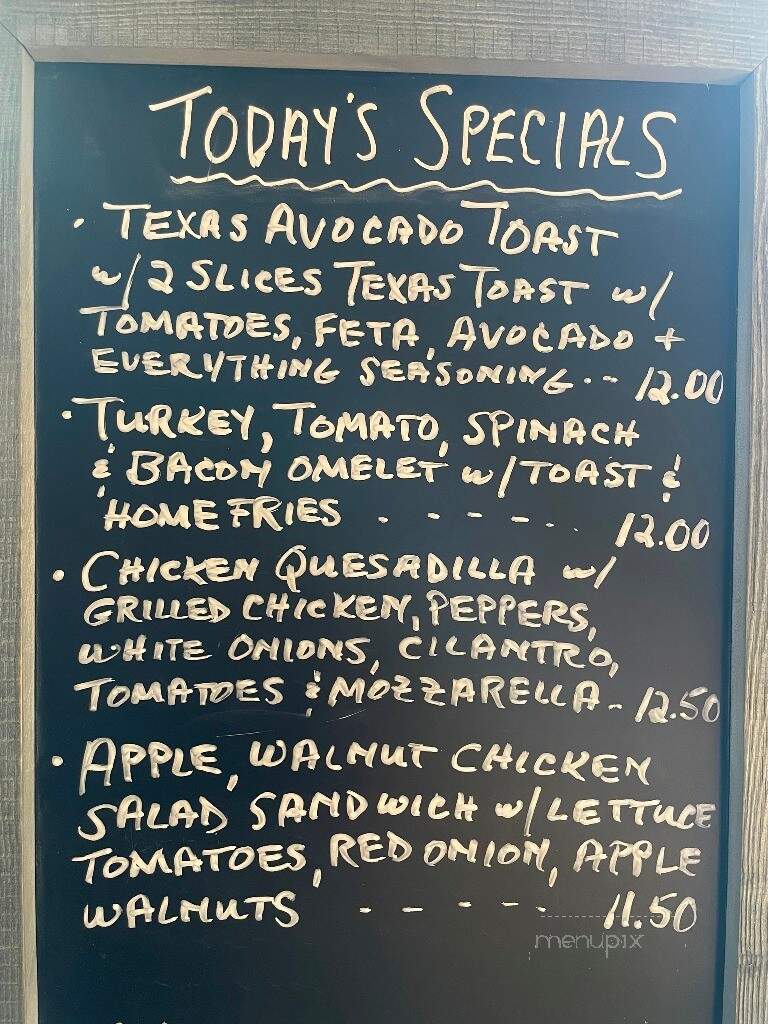 TODAY'S SPECIALS
• TEXAS AVOCADO TOAST
w/2 SLICES TEXAS TOAST w/
TOMATOES, FETA, AVOCADO +
EVERYTHING SEASONING.-- 12.00
• TURKEY, TOMATO, SPINACH
& BACON OMELET w/TOAST &
HOME FRIES . - - - .. 12.00
• CHICKEN QUESADILLA w/
GRILLED CHICKEN, PEPPERS,
WHITE ONIONS, CILANTRO,
TOMATOES & MOZZARELLA- 12.50
• APPLE, WALNUT CHICKEN
SALAD SANDWICH w/LETTUCE
TOMATOES, RED ONION, APPLE
WALNUTS - - - - - 11.50
menupix